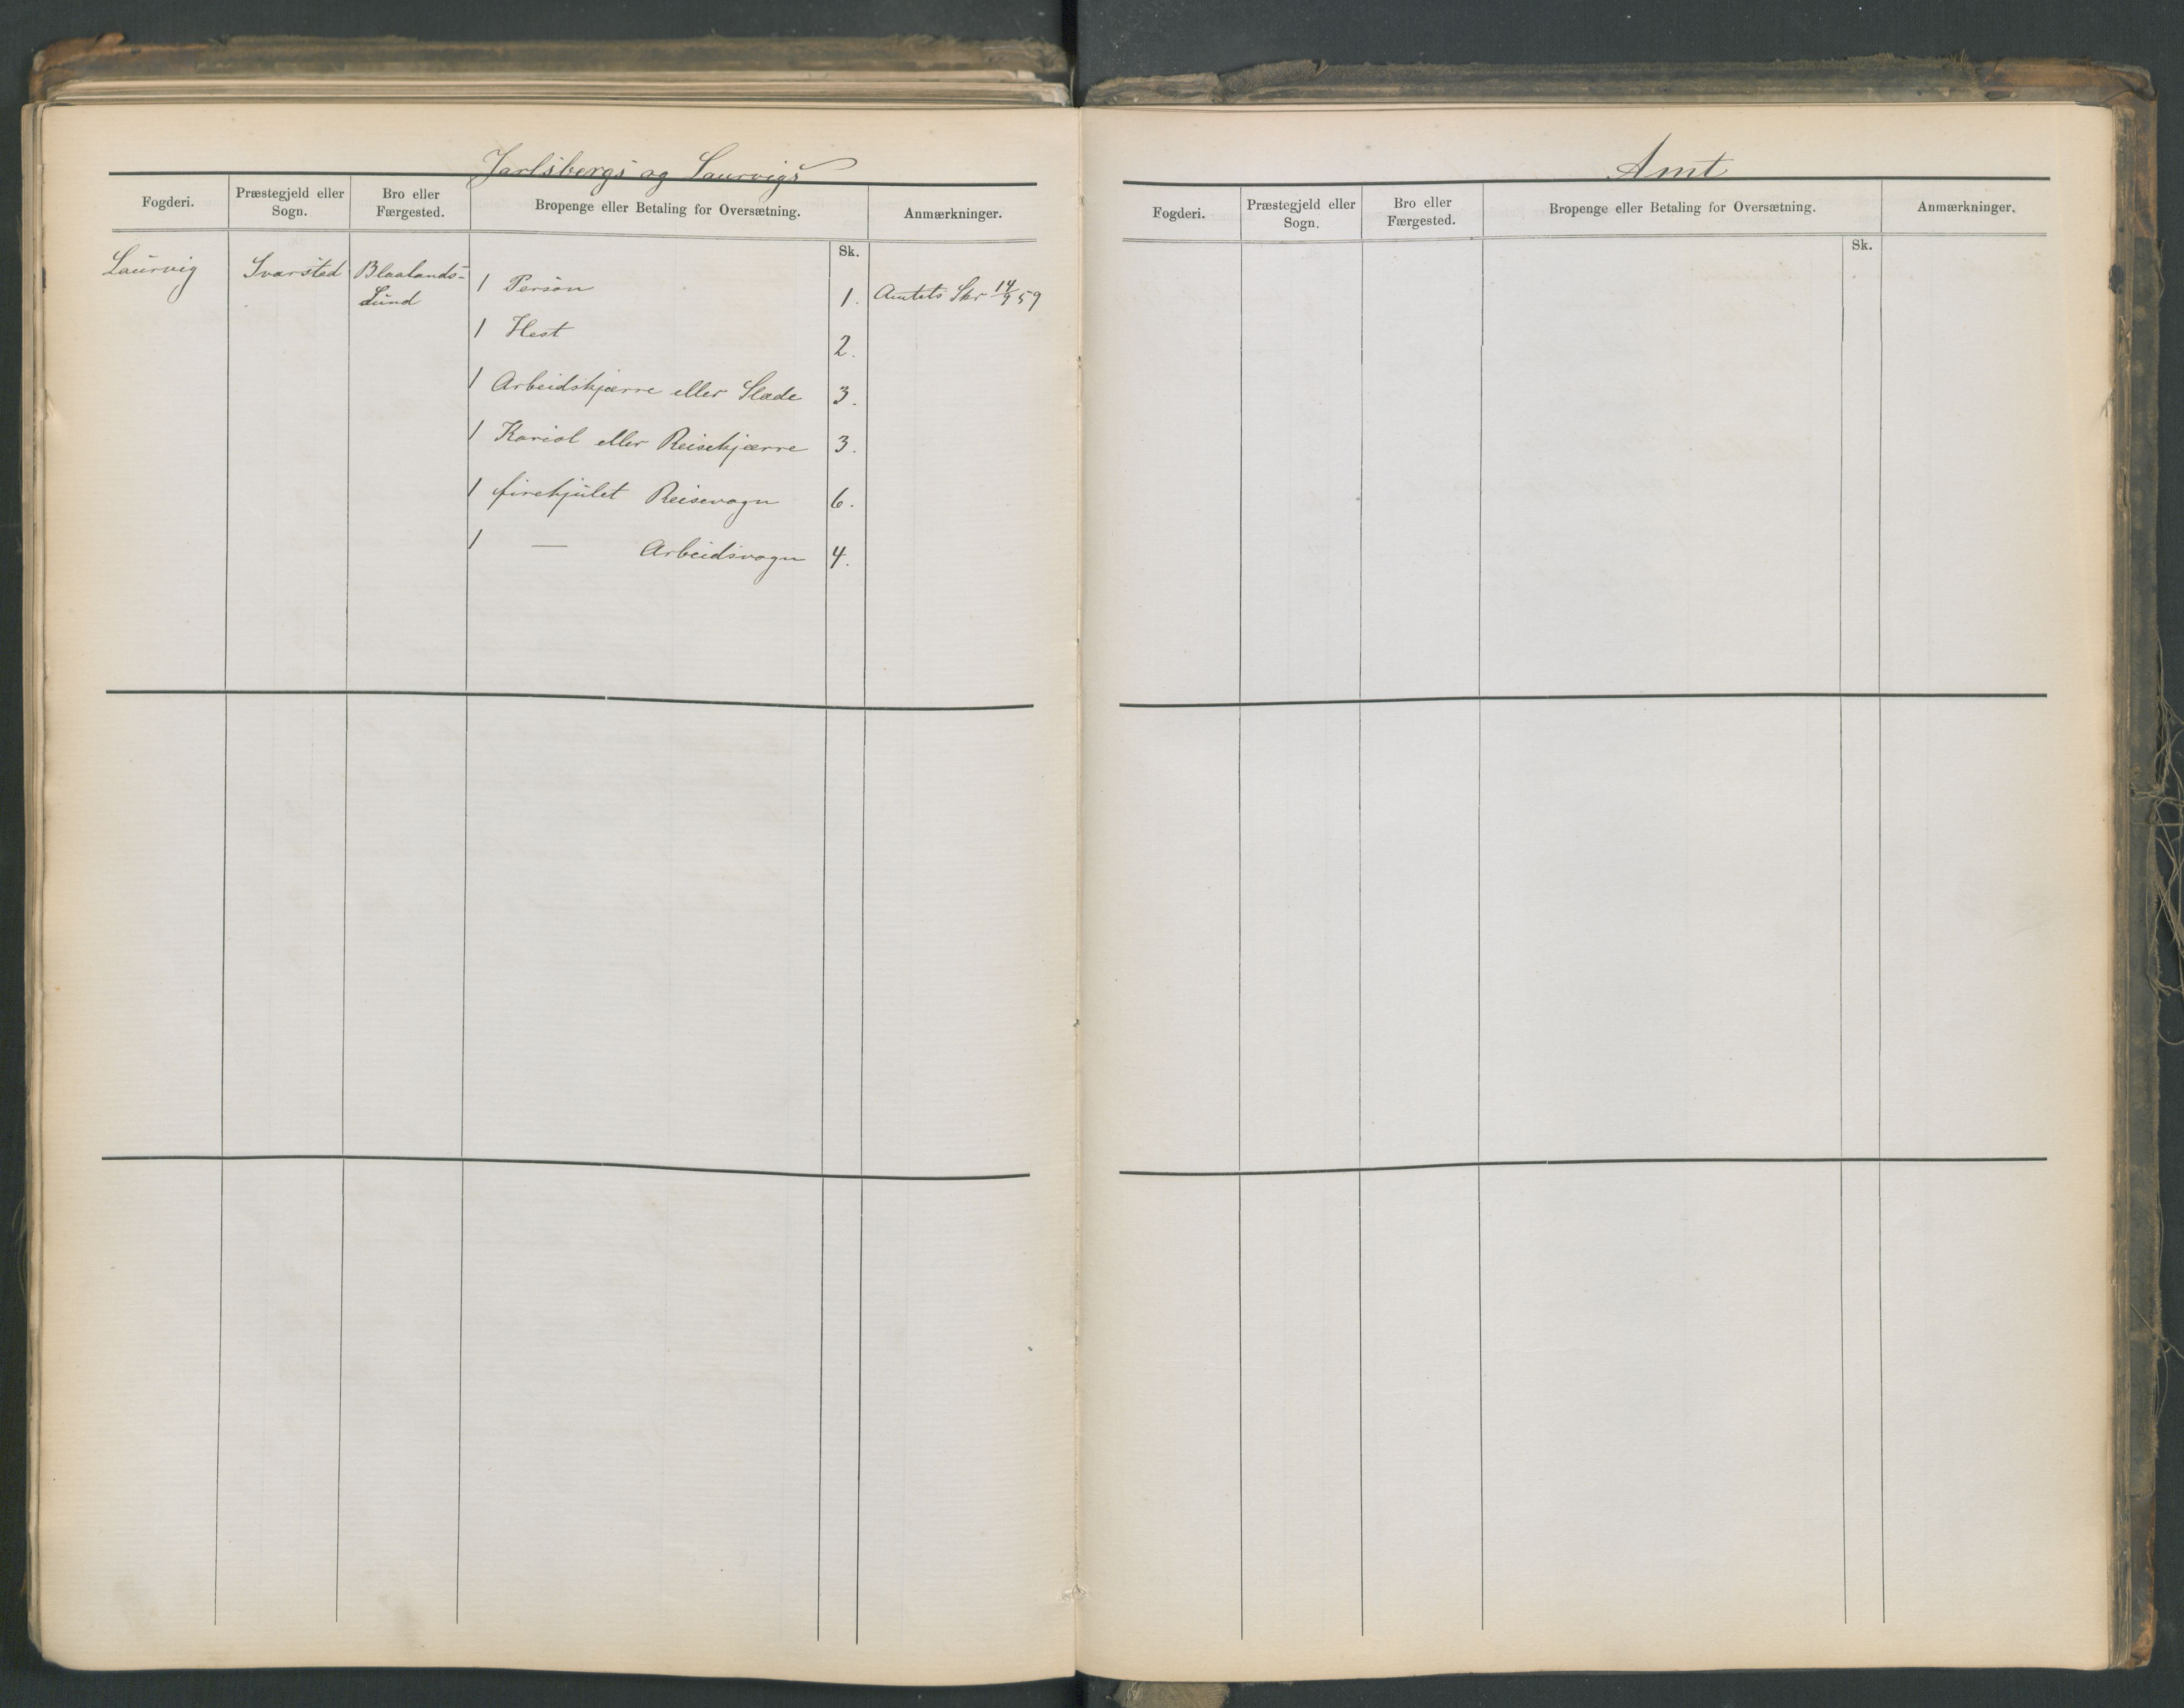 Jarlsbergs og Laurvigs
Fogderi.
Præstegjeld eller
Sogn.
Bro eller
Færgested.
Bropenge eller Betaling for Oversætning.
Anmærkninger.
Sk.
Laurvig
Svarstad
Blaalands-
Sund
1 Person 1. Amtets Skr 14/9 59
1 Hest 2.
1 Arbeidskjærre eller Slæde 3.
1 Kariol eller Reisekjærre 3.
1 firehjulet Reisevogn 6.
1 — Arbeidsvogn 4.
Amt
Fogderi.
Præstegjeld eller
Sogn.
Bro eller
Færgested.
Bropenge eller Betaling for Oversætning.
Anmærkninger.
Sk.